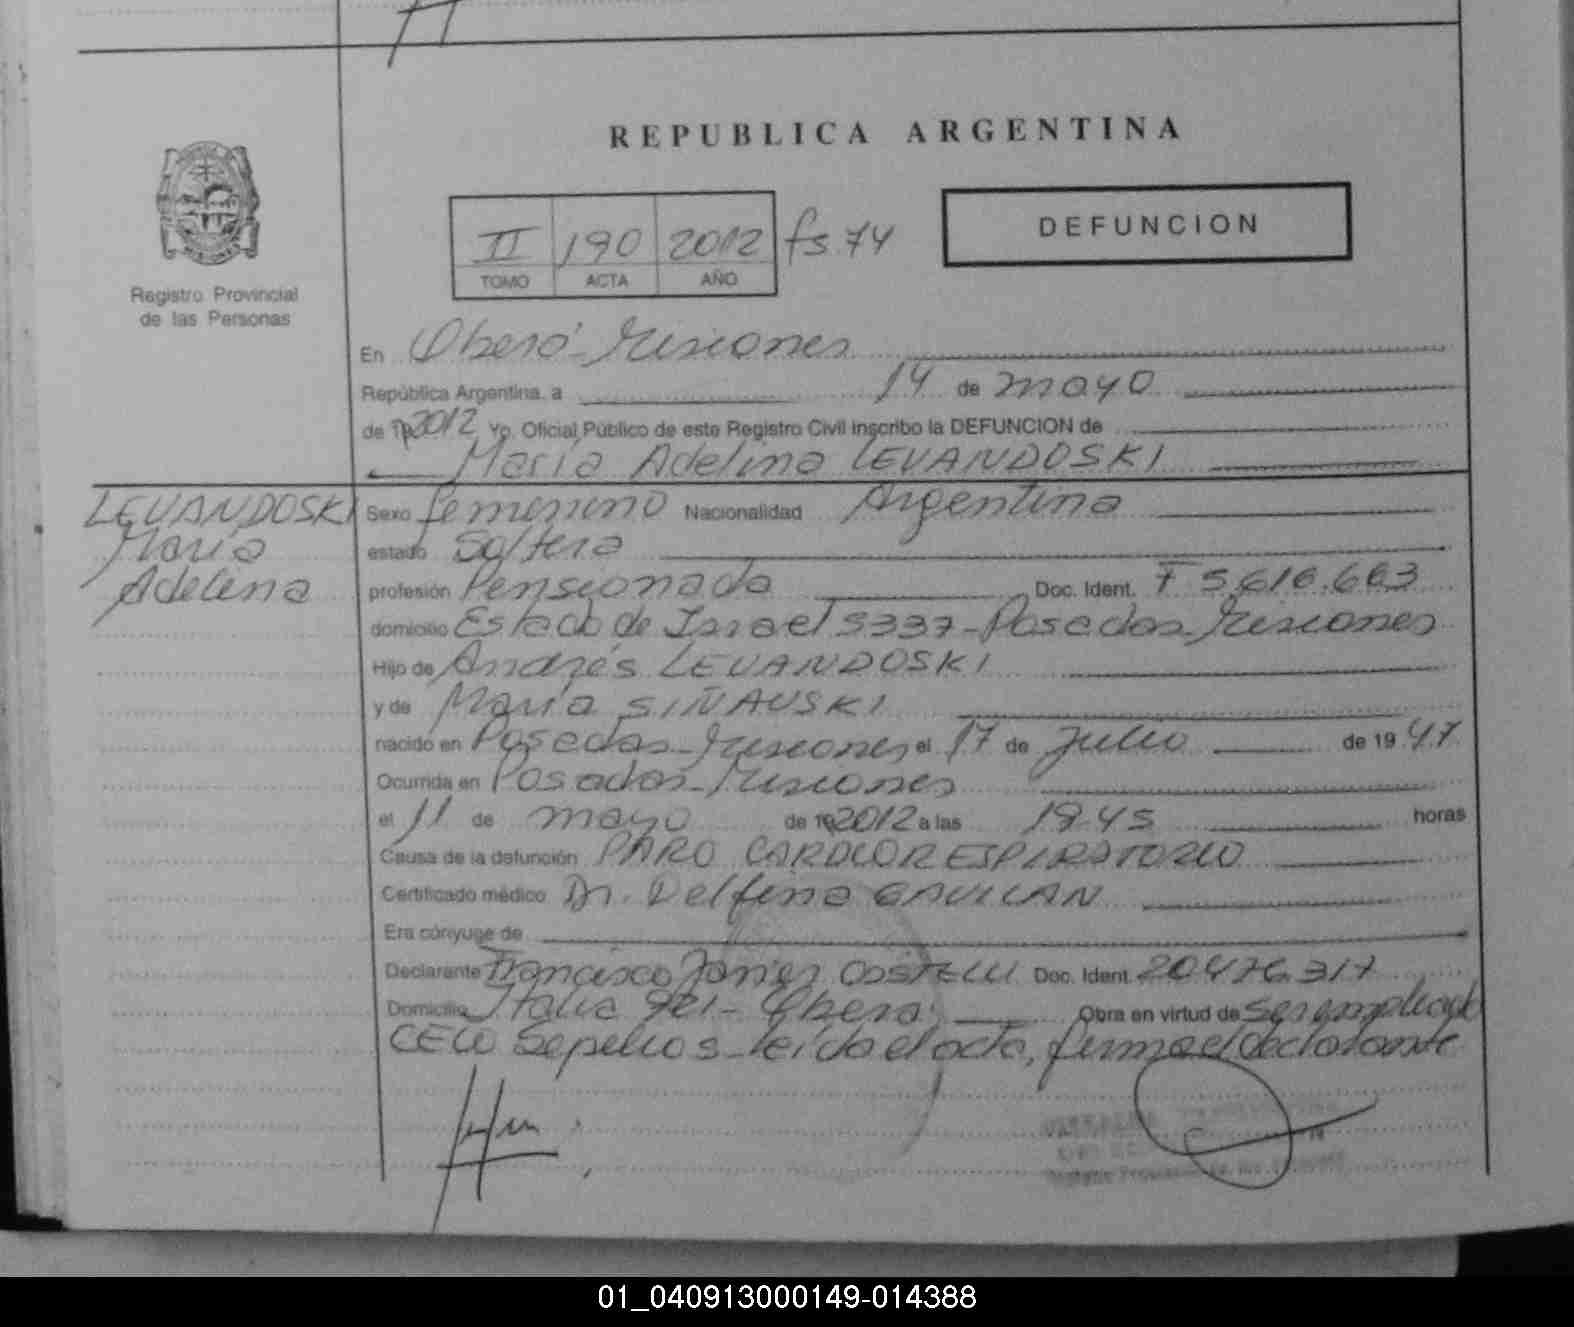 REPUBLICA ARGENTINA
II 190 2012 fs. 74
TOMO ACTA AÑO
DEFUNCION
Registro Provincial
de las Personas
En Oberá - Misiones
República Argentina, a 14 de mayo
de 19 2012 Yo, Oficial Público de este Registro Civil inscribo la DEFUNCION de
María Adelina LEVANDOSKI
LEVANDOSKI
María
Adelina
Sexo femenino Nacionalidad Argentina
estado Soltera
profesión Pensionada Doc. Ident. F 5.616.663
domicilio Estado de Israel 5337 - Posadas - Misiones
Hijo de Andrés LEVANDOSKI
y de María SIÑAUSKI
nacido en Posadas - Misiones el 17 de Julio de 19 47
Ocurrida en Posadas - Misiones
el 11 de mayo de 19 2012 a las 19.45 horas
Causa de la defunción PARO CARDIORESPIRATORIO
Certificado médico Dr. Delfina GAVILAN
Era cónyuge de
Declarante Francisco Javier COSTELLI Doc. Ident. 20.476.317
Domicilio Italia 921 - Oberá Obra en virtud de ser empleado
CELO Sepelios - leída el acta, firma el declarante
01_040913000149-014388